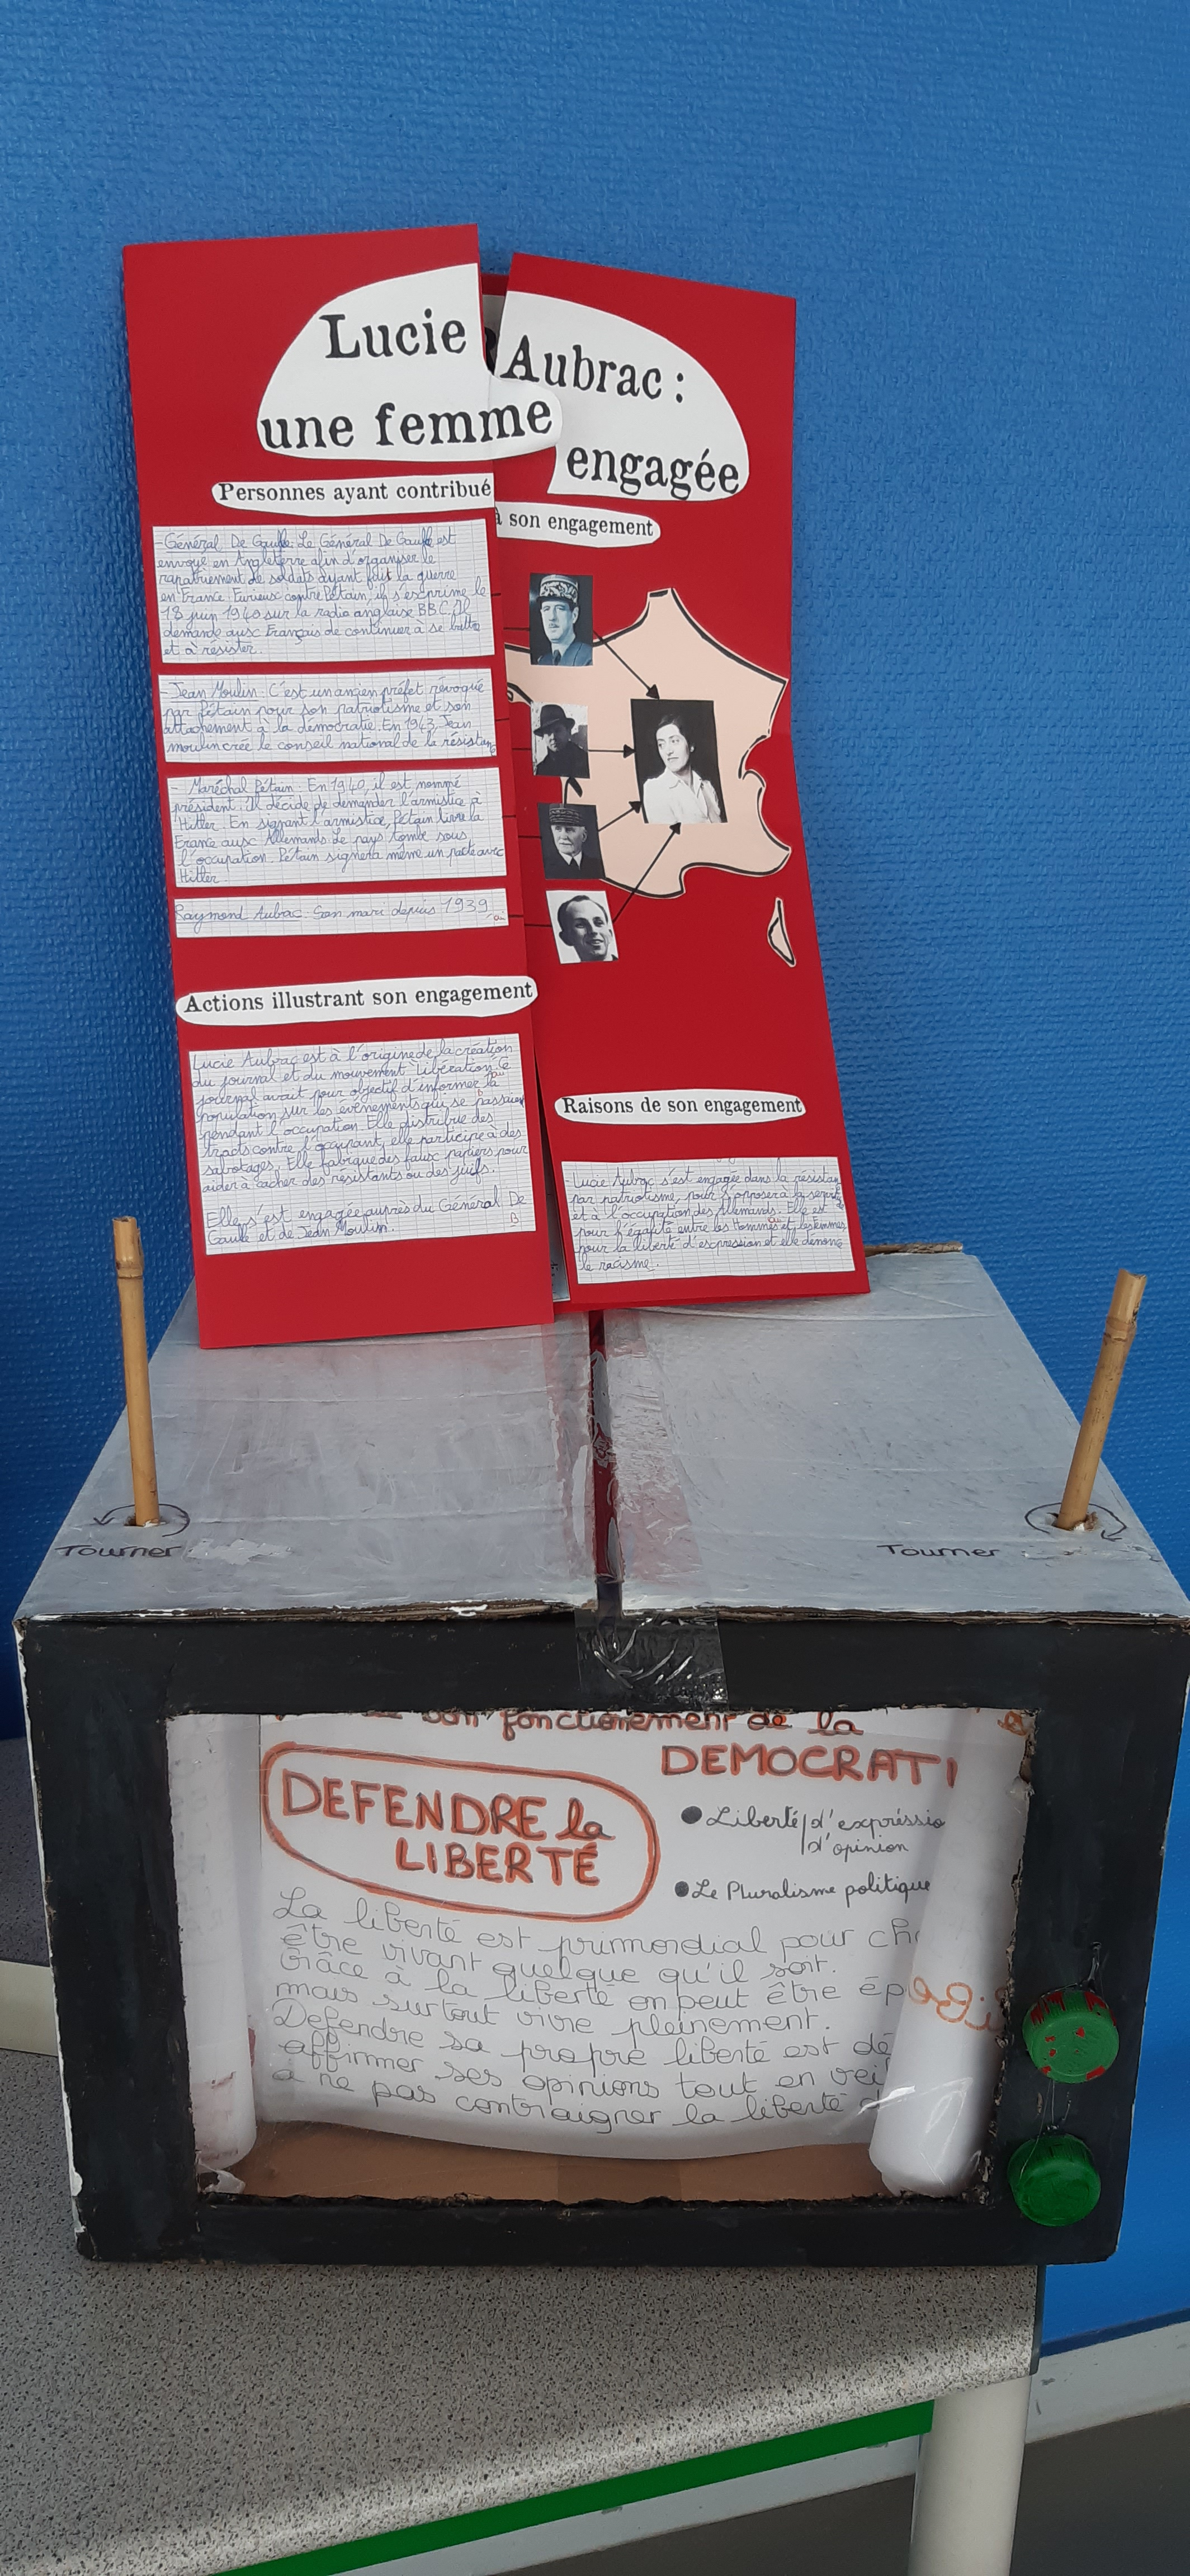 Lucie Aubrac :
une femme engagée
Personnes ayant contribué à son engagement
- Général De Gaulle. Le Général De Gaulle est
envoyé en Angleterre afin d'organiser le
rapatriement de soldats ayant fait la guerre
en France. Furieux contre Pétain, il s'exprime le
18 juin 1940 sur la radio anglaise BBC. Il
demande aux Français de continuer à se battre
et à résister.
- Jean Moulin. C'est un ancien préfet révoqué
par Pétain pour son patriotisme et son
attachement à la démocratie. En 1943, Jean
moulin crée le conseil national de la
- Maréchal Pétain. En 1940, il est nommé
président. Il décide de demander l'armistice à
Hitler. En signant l'armistice, Pétain livre la
France aux Allemands. Le pays tombe sous
l'occupation. Pétain signera même un pacte avec
Hitler.
Raymond Aubrac. Son mari depuis 1939.
Actions illustrant son engagement
Lucie Aubrac est à l'origine de la création
du journal et du mouvement Libération. Ce
journal avait pour objectif d'informer la
population sur les évènements qui se
pendant l'occupation. Elle distribue des
tracts contre l'occupant, elle participe à des
sabotages. Elle fabrique des faux papiers pour
aider à cacher des resistants ou des juifs.
Elle s'est engagée auprès du Général De
Gaulle et de Jean Moulin.
Raisons de son engagement
- Lucie Aubrac s'est engagée dans la
par patriotisme, pour s'opposer à la
et à l'occupation des Allemands. Elle est
pour l'égalité entre les Hommes et les femmes
pour la liberté d'expression et elle dénonce
le racisme.
Tourner
Tourner
bon fonctionnement de la
DEMOCRATI
DEFENDRE la
LIBERTÉ
● Liberté d'expréssio
d'opinion
● Le Pluralisme politique
La liberté est primordial pour ch
être vivant quelque qu'il soit.
Grâce à la liberté on peut être ép
mais surtout vivre pleinement.
Defendre sa propre liberté est dé
affirmer ses opinions tout en vei
à ne pas contraigner la liberté d